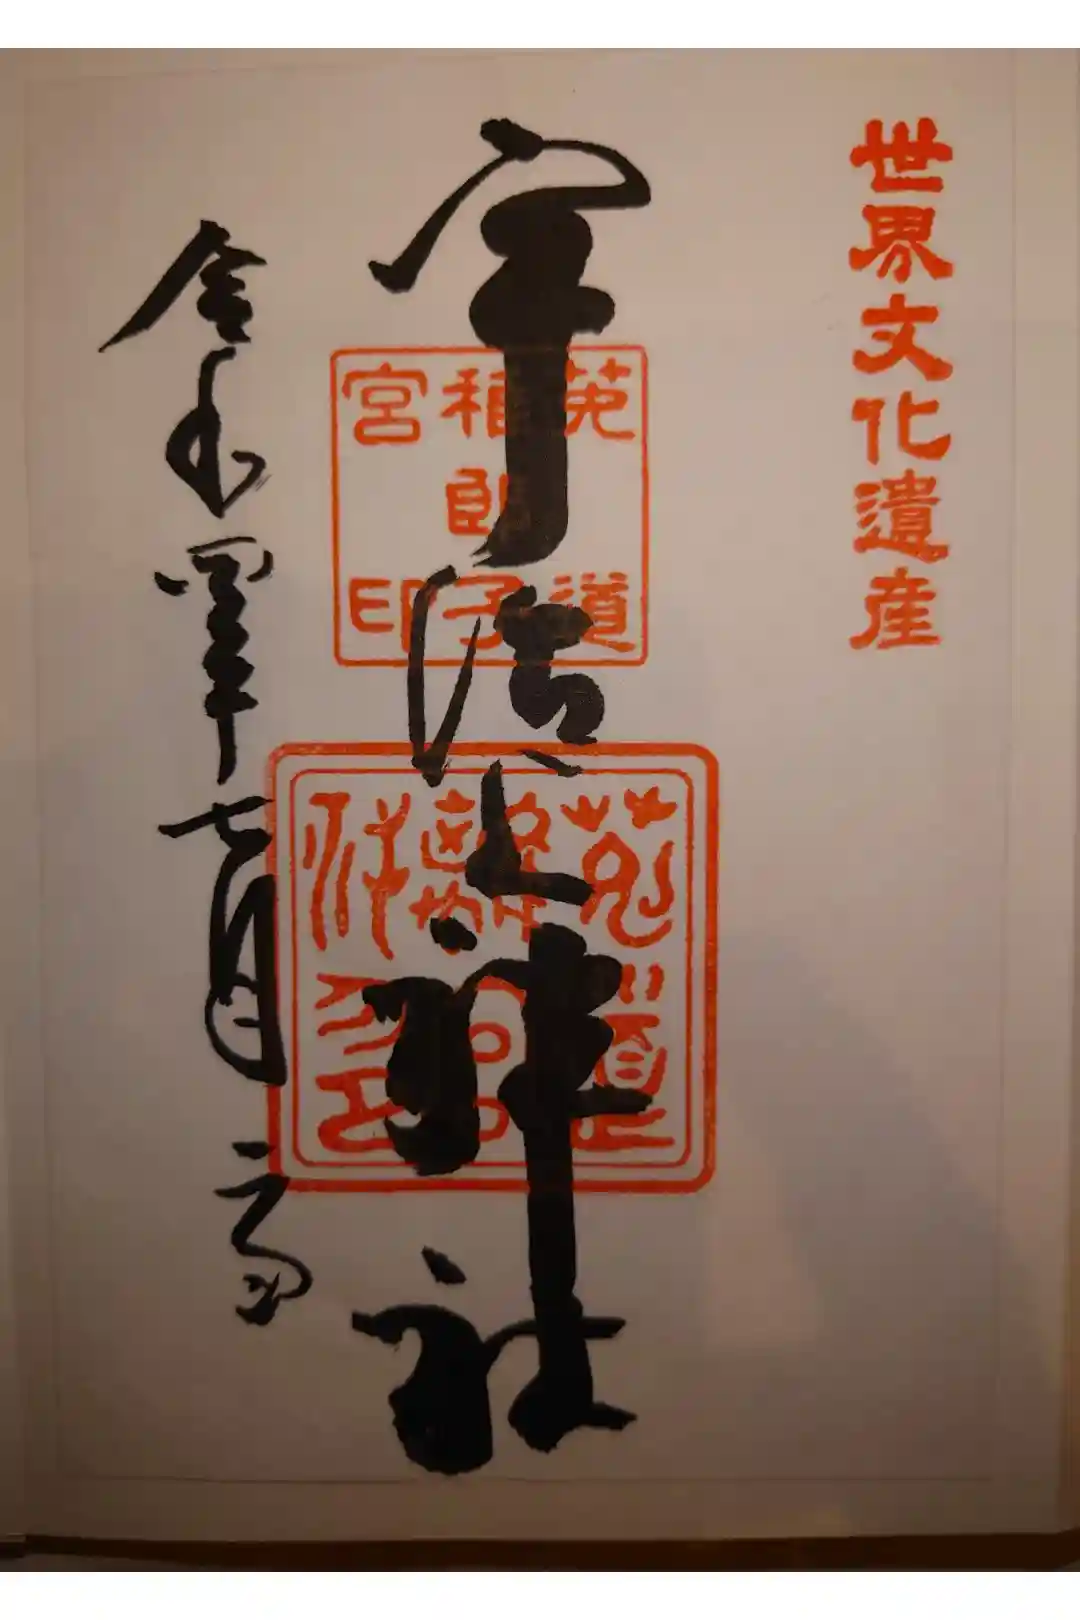 世界文化遺産
宇治上神社
莵道
稚郎子
宮印
菟道
離宮
令和四年七月